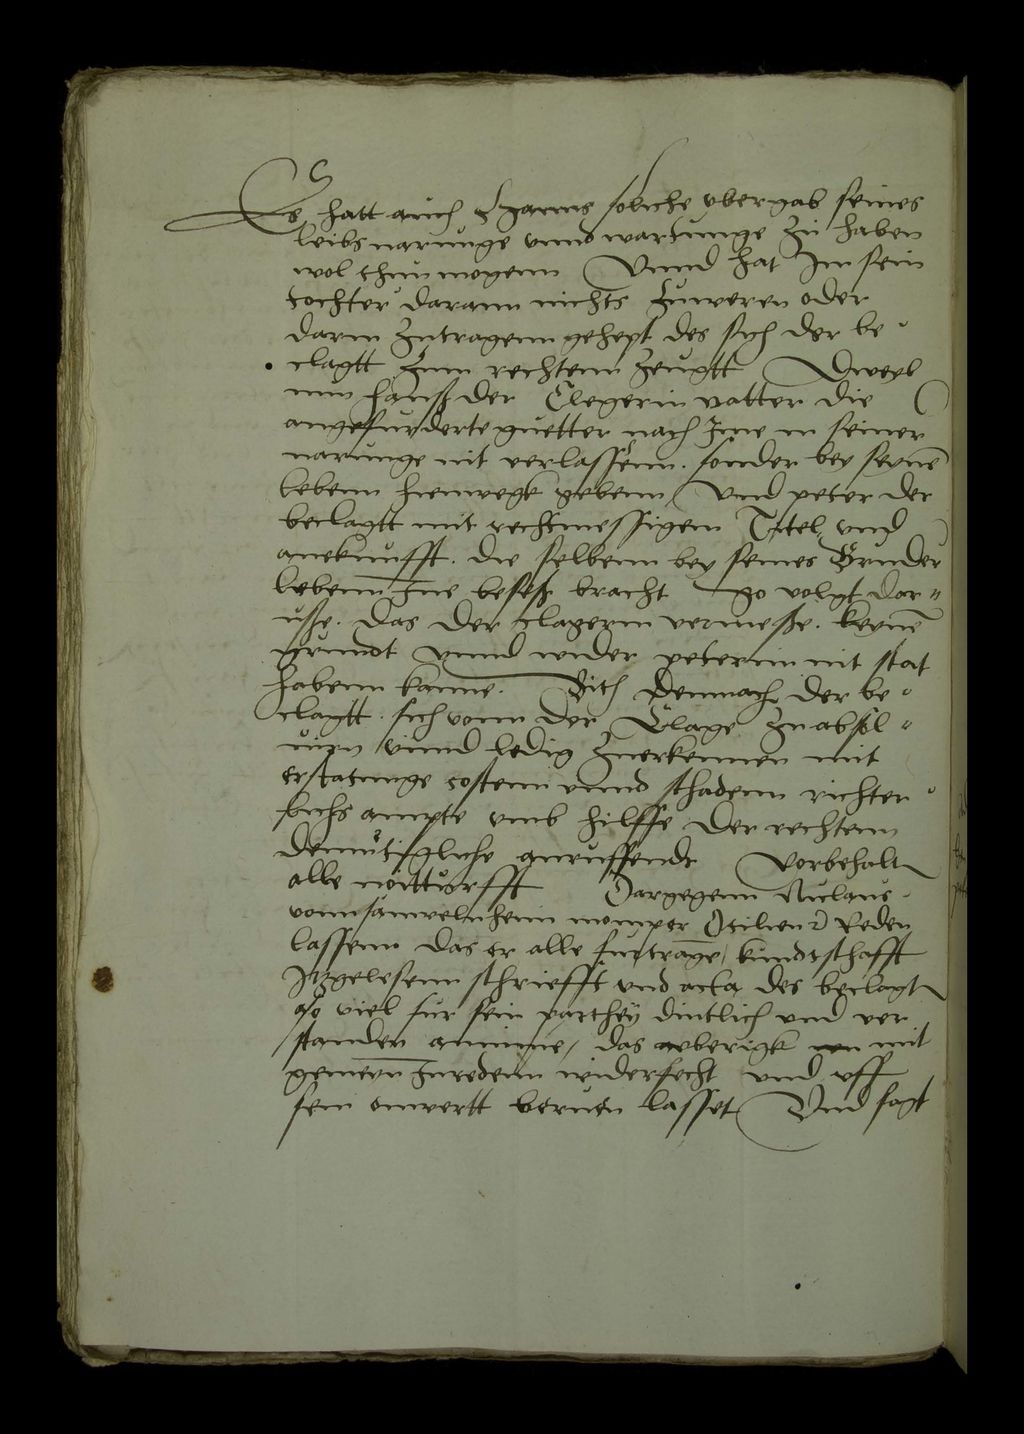 Es hatt auch Hanns solche vbergab seines
leibs narunge vnnd wartunge zu haben
wol thun mogenn Vnnd hat Im sein
tochter darann nichts zuweren oder
darin zutragenn gehept des sich der be
clagtt zum rechtenn zeugtt Dweyl
nun hanß der Clegerin vatter die
angefurderte guetter nach Ime in seiner
narunge nit verlassenn. sonder bey seynē
lebenn hienwegk gebenn, Vnd peter der
beclagtt mit rechtmessigem Tittel vnd
ankunfft. die selbenn bey seines Bruder
lebenn Ine besess bracht so volgt dar
usße. das der clagerin vermeße. keynē
grundt vnnd wider peterin nit stat
habenn kanne. Bith demnach der be
clagtt. sich vonn der Clage zu absol
uirn vnnd ledig zuerkennen mit
erstatunge costenn vnnd schadenn richter
lichs ampte vmb hilffe der rechtenn
demutigliche anruffende Vorbehalt
alle notturfft Dargegenn Niclaus
vonn sauwelnheim momper Otilien Reden
lassenn das er alle furtrage, kundtschafft
Itzgelesenn schriefft vnd acta des beclagt
so viel fur sein parthey dintlich vnd ver
standen annime, das vberigk mit
gemeyn Inredenn widerfecht vnd vff
sein antwertt beruen lasset Vnd sagt